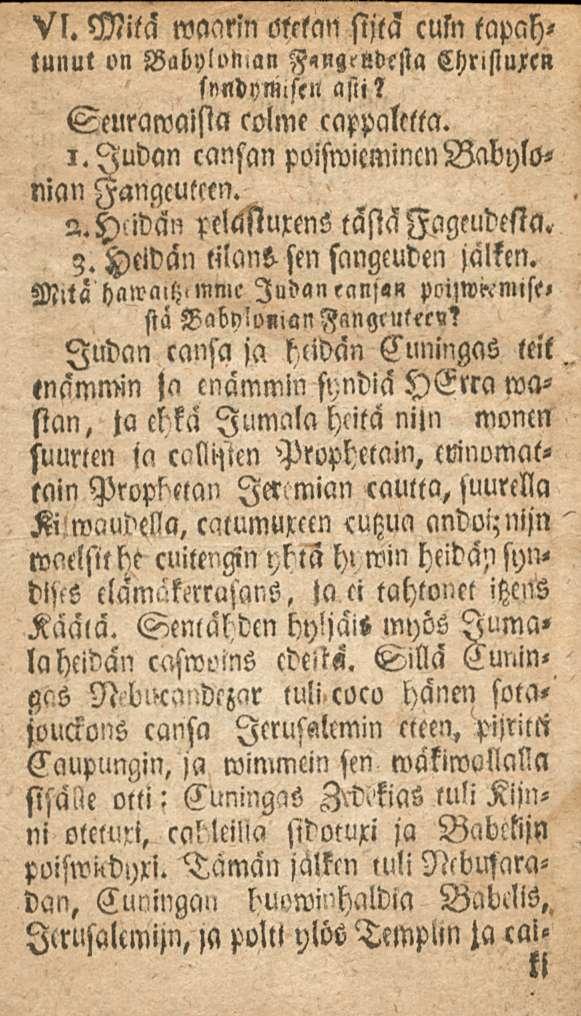 VI. Mitä waarin otetan sijtä cuin tapah-
tunut on Babylonian Fangeudesta Christuxen
syndymisen asti?
Seurawaista colme cappaletta.
1. Judan cansan poiswieminen Babylo-
nian Fangeuteen.
2. Heidän pelastuxens tästä Fageudesta.
3. Heidän tilans sen fangeuden jälken.
Mitä hawaitzemme Judan cansan poiswiemise-
stä Babylonian Fangeuteen?
Judan cansa ja heidän Cuningas teit
enämmin ja enämmin syndiä HErra wa-
stan, ja ehkä Jumala heitä nijn monen
suurten ja callisten Prophetain, erinomat-
tain Prophetan Jeremian cautta, suurella
Kijwaudella, catumuxeen cutzua andoi; nijn
waelsit he cuitengin yhtä hywin heidän syn-
dises elämäkerrasans, ja ei tahtonet itzens
Käätä. Sentähden hyljäis myös Juma-
la heidän caswoins edestä. Sillä Cunin-
gas Nebucandezar tuli coco hänen sota-
jouckons cansa Jerusalemin eteen, pijritti
Caupungin, ja wimmein sen wäkiwallalla
sisälle otti: Cuningas Zedekias tuli Kijn-
ni otetuxi, cahleilla sidotuxi ja Babelijn
poiswiedyxi. Tämän jälken tuli Nebusara-
dan, Cuningan huowinhaldia Babelis,
Jerusalemijn, ja poltti ylös Templin ja cai-
ki